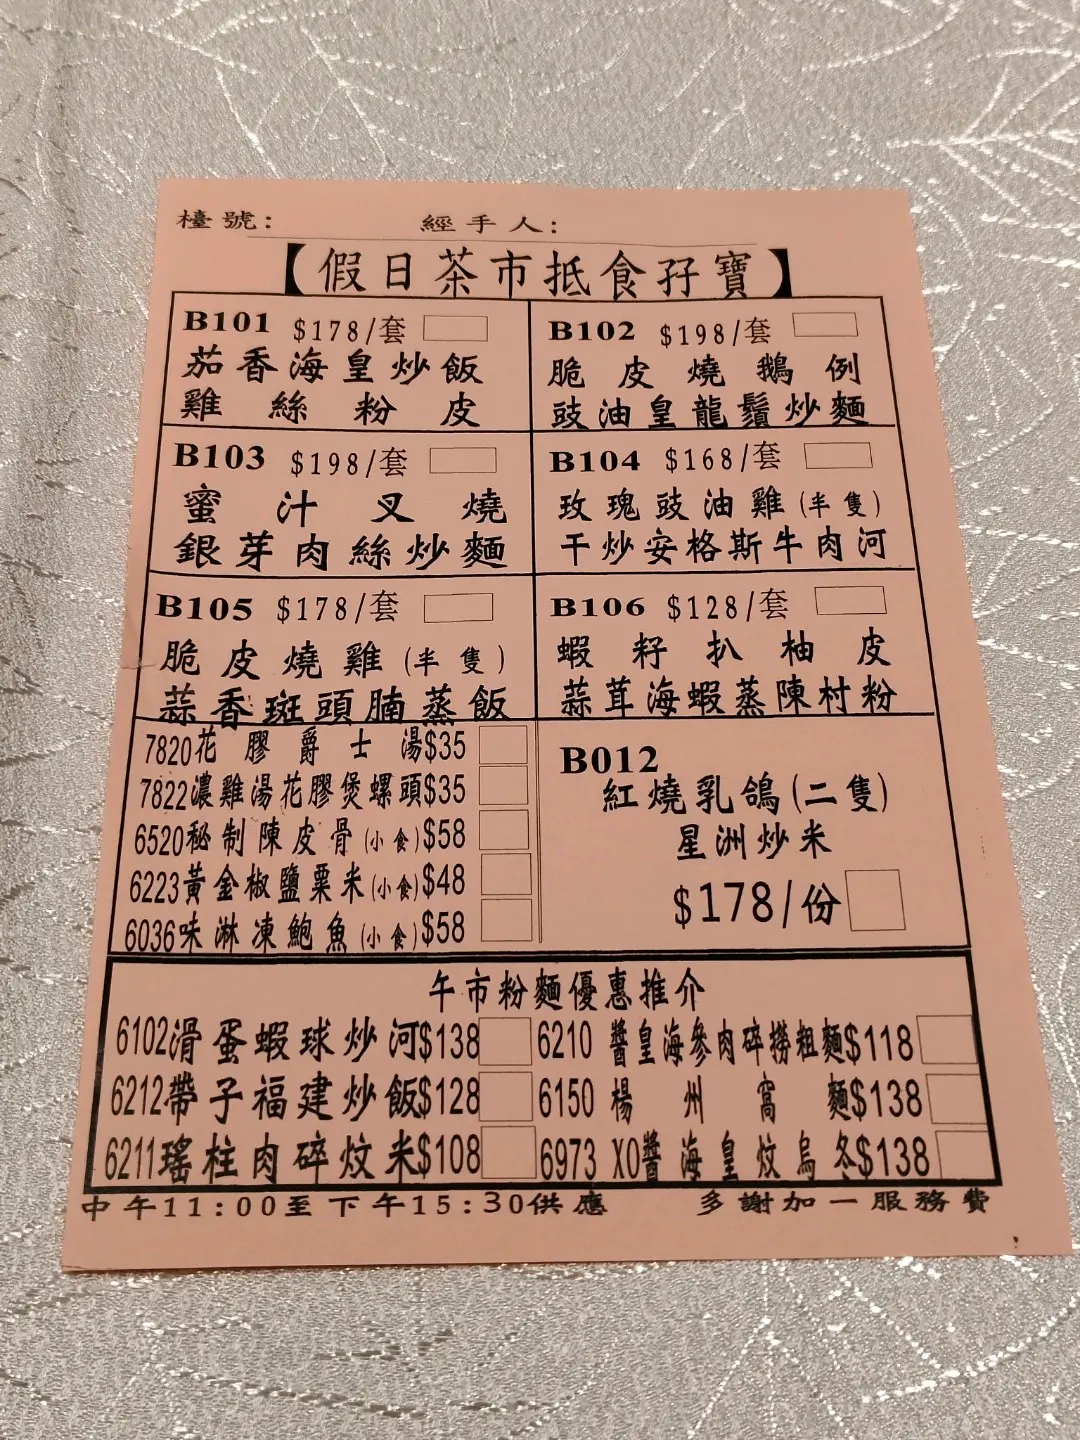 檯號:
經手人:
【假日茶市抵食孖寶】
B101 $178/套
茄香海皇炒飯
雞絲粉皮
B102 $198/套
脆皮燒鵝例
豉油皇龍鬚炒麵
B103 $198/套
蜜汁叉燒
銀芽肉絲炒麵
B104 $168/套
玫瑰豉油雞(半隻)
干炒安格斯牛肉河
B105 $178/套
脆皮燒雞(半隻)
蒜香斑頭腩蒸飯
B106 $128/套
蝦籽扒柚皮
蒜茸海蝦蒸陳村粉
7820花膠爵士湯$35
7822濃雞湯花膠煲螺頭$35
6520秘制陳皮骨(小食)$58
6223黃金椒鹽粟米(小食)$48
6036味淋凍鮑魚(小食)$58
B012
紅燒乳鴿(二隻)
星洲炒米
$178/份
午市粉麵優惠推介
6102滑蛋蝦球炒河$138
6210 醬皇海參肉碎撈粗麵$118
6212帶子福建炒飯$128
6150 楊州窩麵$138
6211瑤柱肉碎炆米$108
6973 XO醬海皇炆烏冬$138
中午11:00至下午15:30供應
多謝加一服務費